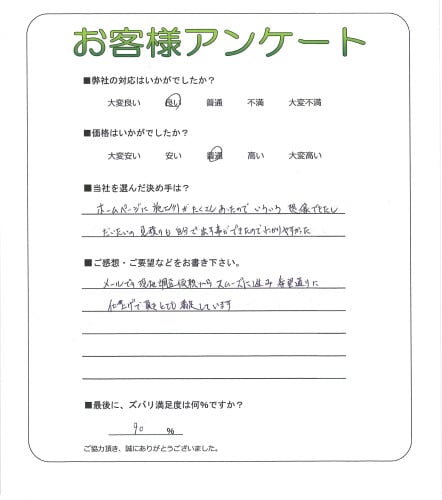 お客様アンケート
■弊社の対応はいかがでしたか?
大変良い 良い 普通 不満 大変不満
■価格はいかがでしたか?
大変安い 安い 普通 高い 大変高い
■当社を選んだ決め手は?
ホームページに施工例がたくさんあったのでいろいろ想像できたし
だいたいの見積りも自分で出す事ができたのでわかりやすかった
■ご感想・ご要望などをお書き下さい。
メールでの現地調査依頼からスムーズに進み希望通りに
仕上げて頂きとても満足しています
■最後に、ズバリ満足度は何%ですか?
90 %
ご協力頂き、誠にありがとうございました。